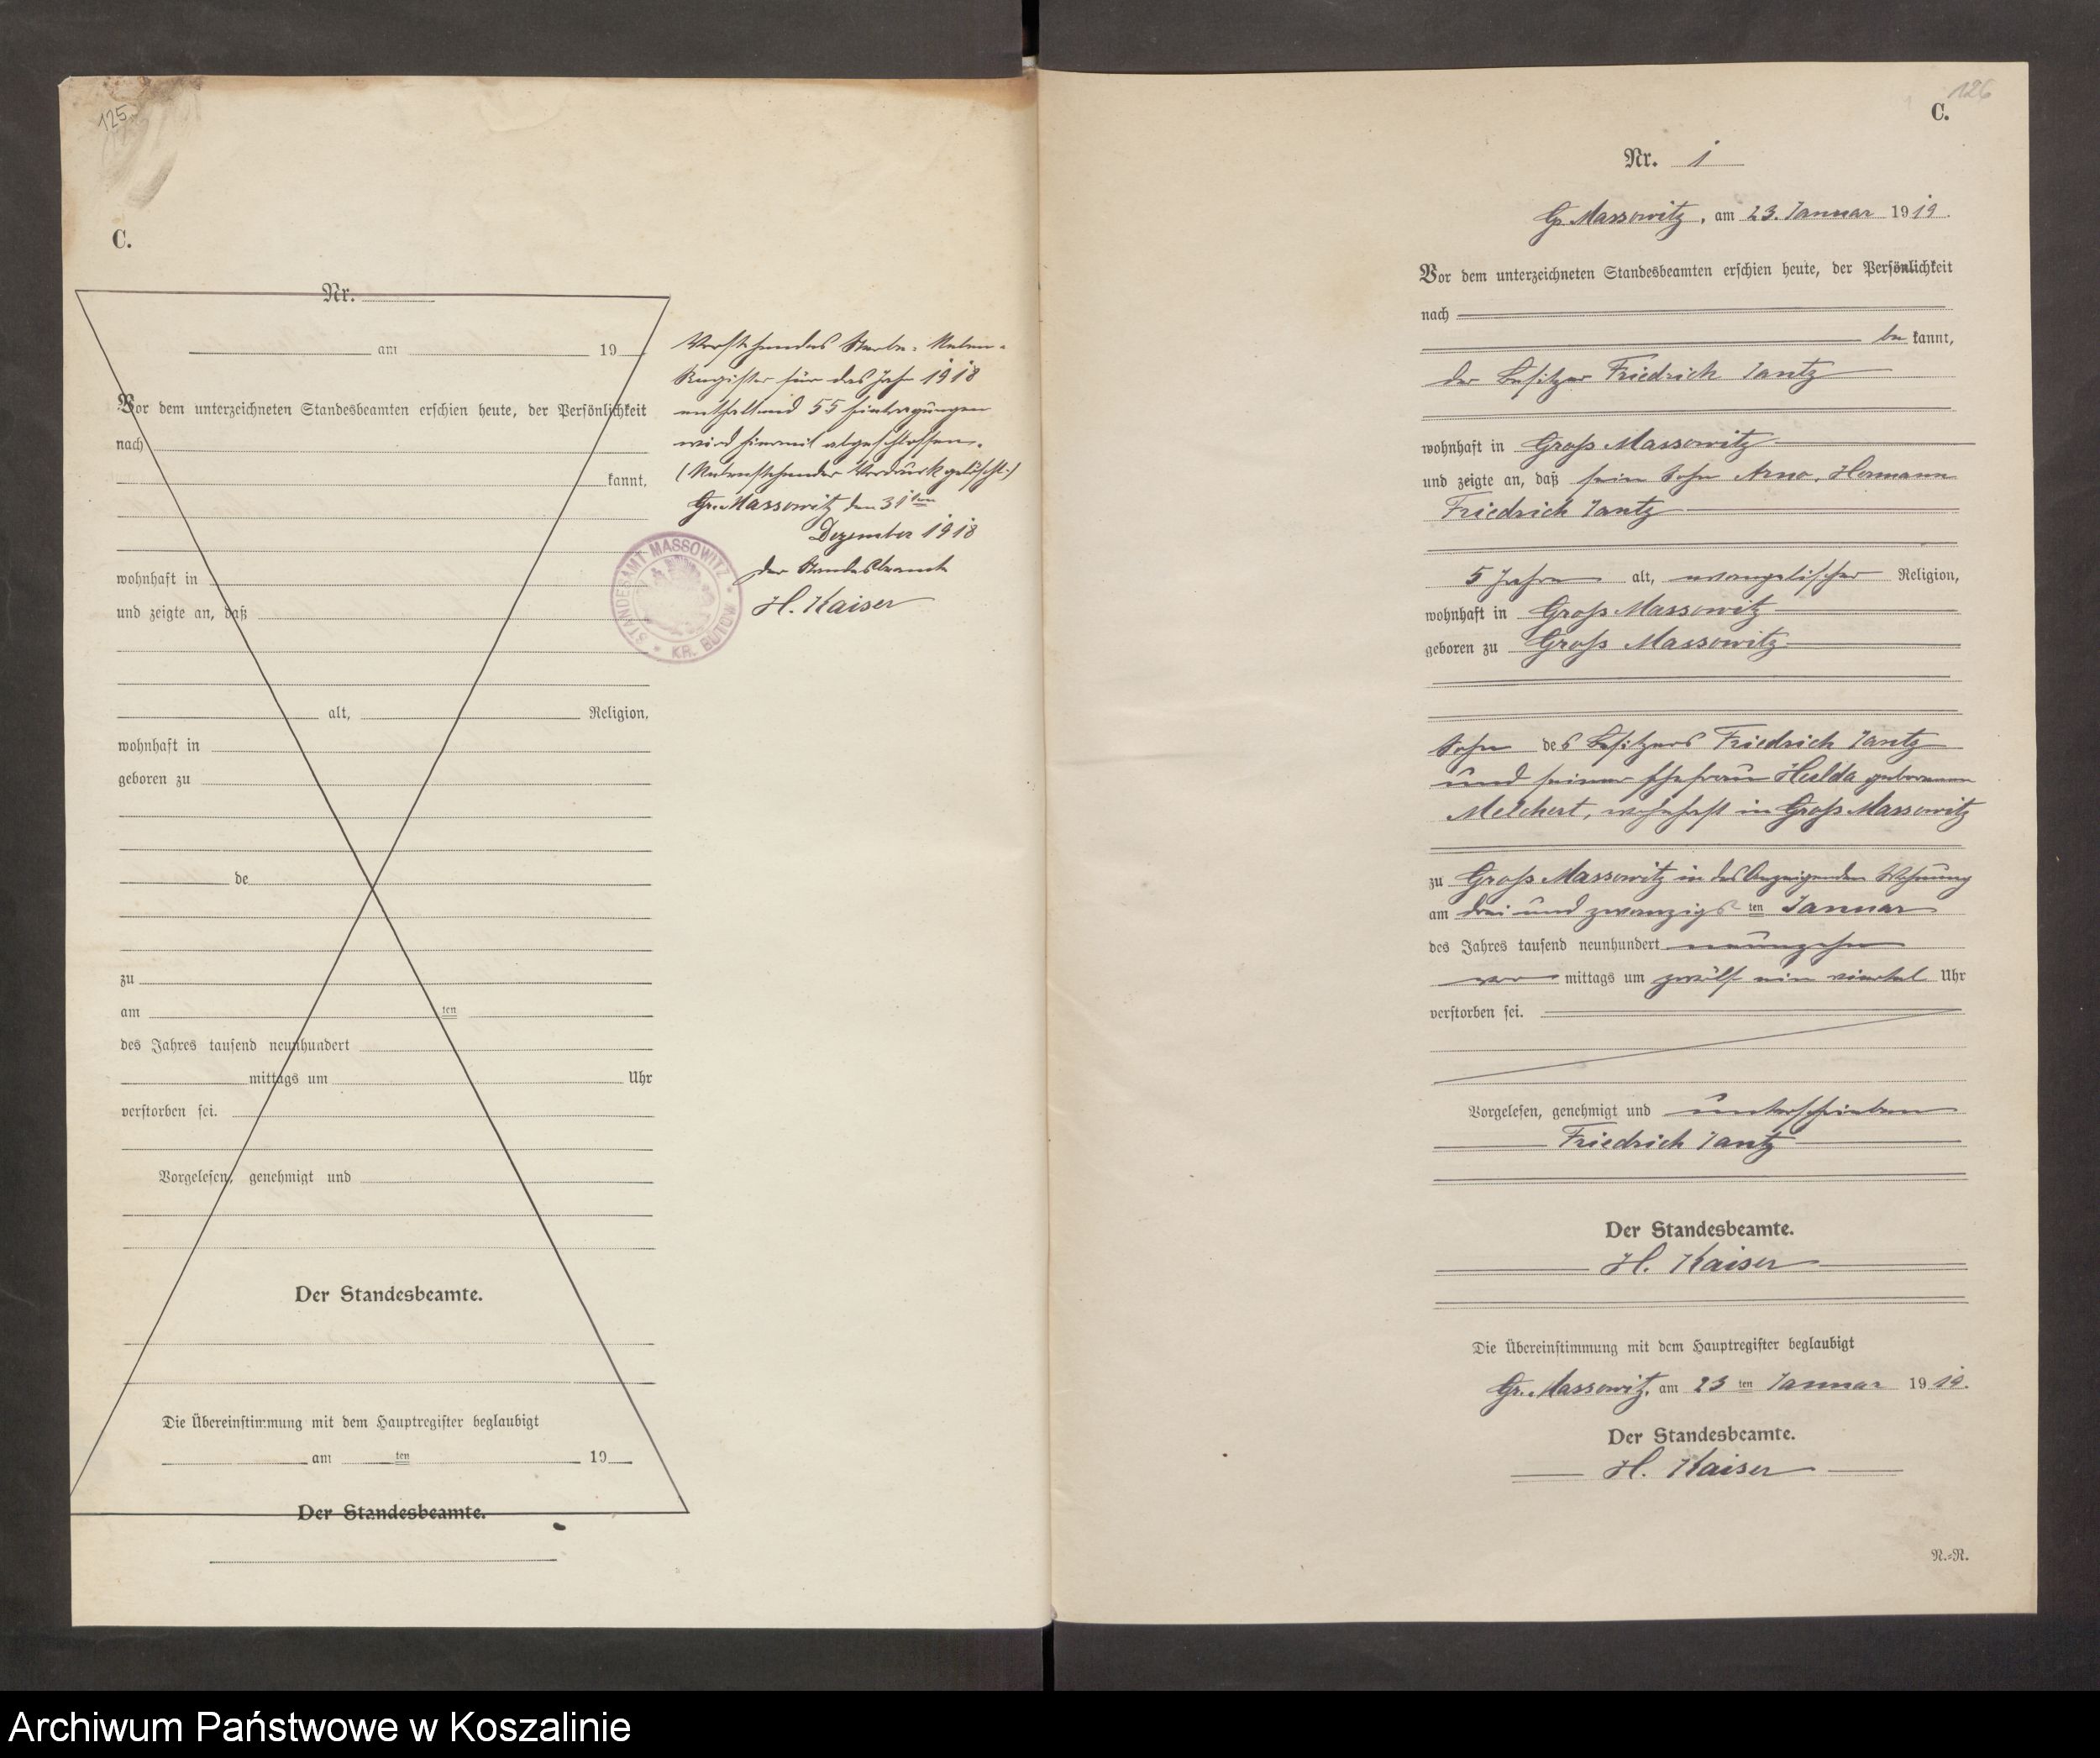 125
C.
Nr.
am 19
Vor dem unterzeichneten Standesbeamten erschien heute, der Persönlichkeit
nach
kannt,
wohnhaft in
und zeigte an, daß
alt, Religion,
wohnhaft in
geboren zu
de
zu
am ten
des Jahres tausend neunhundert
mittags um Uhr
verstorben sei.
Vorgelesen, genehmigt und
Der Standesbeamte.
Die Übereinstimmung mit dem Hauptregister beglaubigt
am ten 19
Der Standesbeamte.
Vorstehendes Sterbe-Neben-
Register für das Jahr 1918
enthaltend 55 Eintragungen
wird hiermit abgeschlossen.
(Nebenstehender Vordruck gelöscht.)
Gr. Massowitz den 31ten
Dezember 1918
Der Standesbeamte
H. Kaiser
STANDESAMT MASSOWITZ * KR. BÜTOW *
126
C.
Nr. 1
Gr. Massowitz, am 23. Januar 1919.
Vor dem unterzeichneten Standesbeamten erschien heute, der Persönlichkeit
nach
be kannt,
der Besitzer Friedrich Jantz
wohnhaft in Groß Massowitz
und zeigte an, daß sein Sohn Arno, Hermann
Friedrich Jantz
5 Jahre alt, evangelischer Religion,
wohnhaft in Groß Massowitz
geboren zu Groß Massowitz
Sohn des Besitzers Friedrich Jantz
und seiner Ehefrau Hulda geborenen
Melchert, wohnhaft in Groß Massowitz
zu Groß Massowitz in des Anzeigenden Wohnung
am drei und zwanzigs ten Januar
des Jahres tausend neunhundert neunzehn
vor mittags um zwölf ein viertel Uhr
verstorben sei.
Vorgelesen, genehmigt und unterschrieben
Friedrich Jantz
Der Standesbeamte.
H. Kaiser
Die Übereinstimmung mit dem Hauptregister beglaubigt
Gr. Massowitz, am 23 ten Januar 1919.
Der Standesbeamte.
H. Kaiser
N.-R.
Archiwum Państwowe w Koszalinie